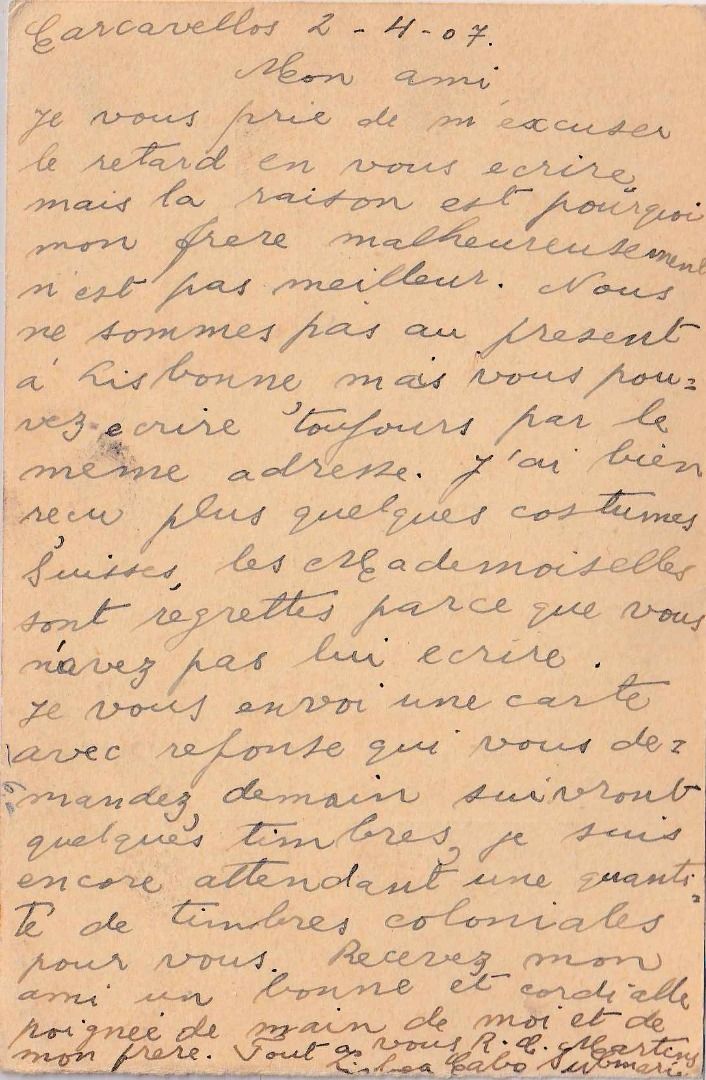 Carcavellos 2-4-07.
Mon ami
Je vous prie de m'excuser
le retard en vous ecrire
mais la raison est pourquoi
mon frere malheureusement
n'est pas meilleur. Nous
ne sommes pas au present
á Lisbonne mais vous pou=
vez ecrire toujours par le
même adresse. J'ai bien
reçu plus quelques costumes
Suisses, les Mademoiselles
sont régrettes parce que vous
n'avez pas lui ecrire.
Je vous envoi une carte
avec reponse qui vous de=
mandez, demain suivront
quelques timbres, je suis
encore attendant une quanti=
té de timbres coloniales
pour vous. Recevez mon
ami un bonne et cordialle
poignée de main de moi et de
mon frere. Tout a vous R. C. Martins
Cabo Submarin